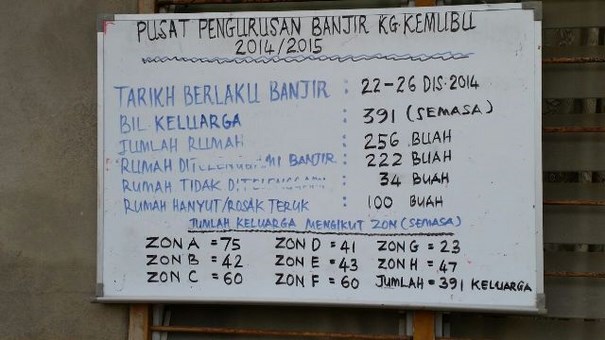 PUSAT PENGURUSAN BANJIR KG KEMUBU
2014/2015
TARIKH BERLAKU BANJIR : 22-26 DIS.2014
BIL KELUARGA : 391 (SEMASA)
JUMLAH RUMAH : 256 BUAH
RUMAH BANJIR : 222 BUAH
RUMAH TIDAK : 34 BUAH
RUMAH HANYUT/ROSAK TERUK : 100 BUAH
JUMLAH KELUARGA MENGIKUT ZON (SEMASA)
ZON A = 75 ZON D = 41 ZON G = 23
ZON B = 42 ZON E = 43 ZON H = 47
ZON C = 60 ZON F = 60 JUMLAH = 391 KELUARGA